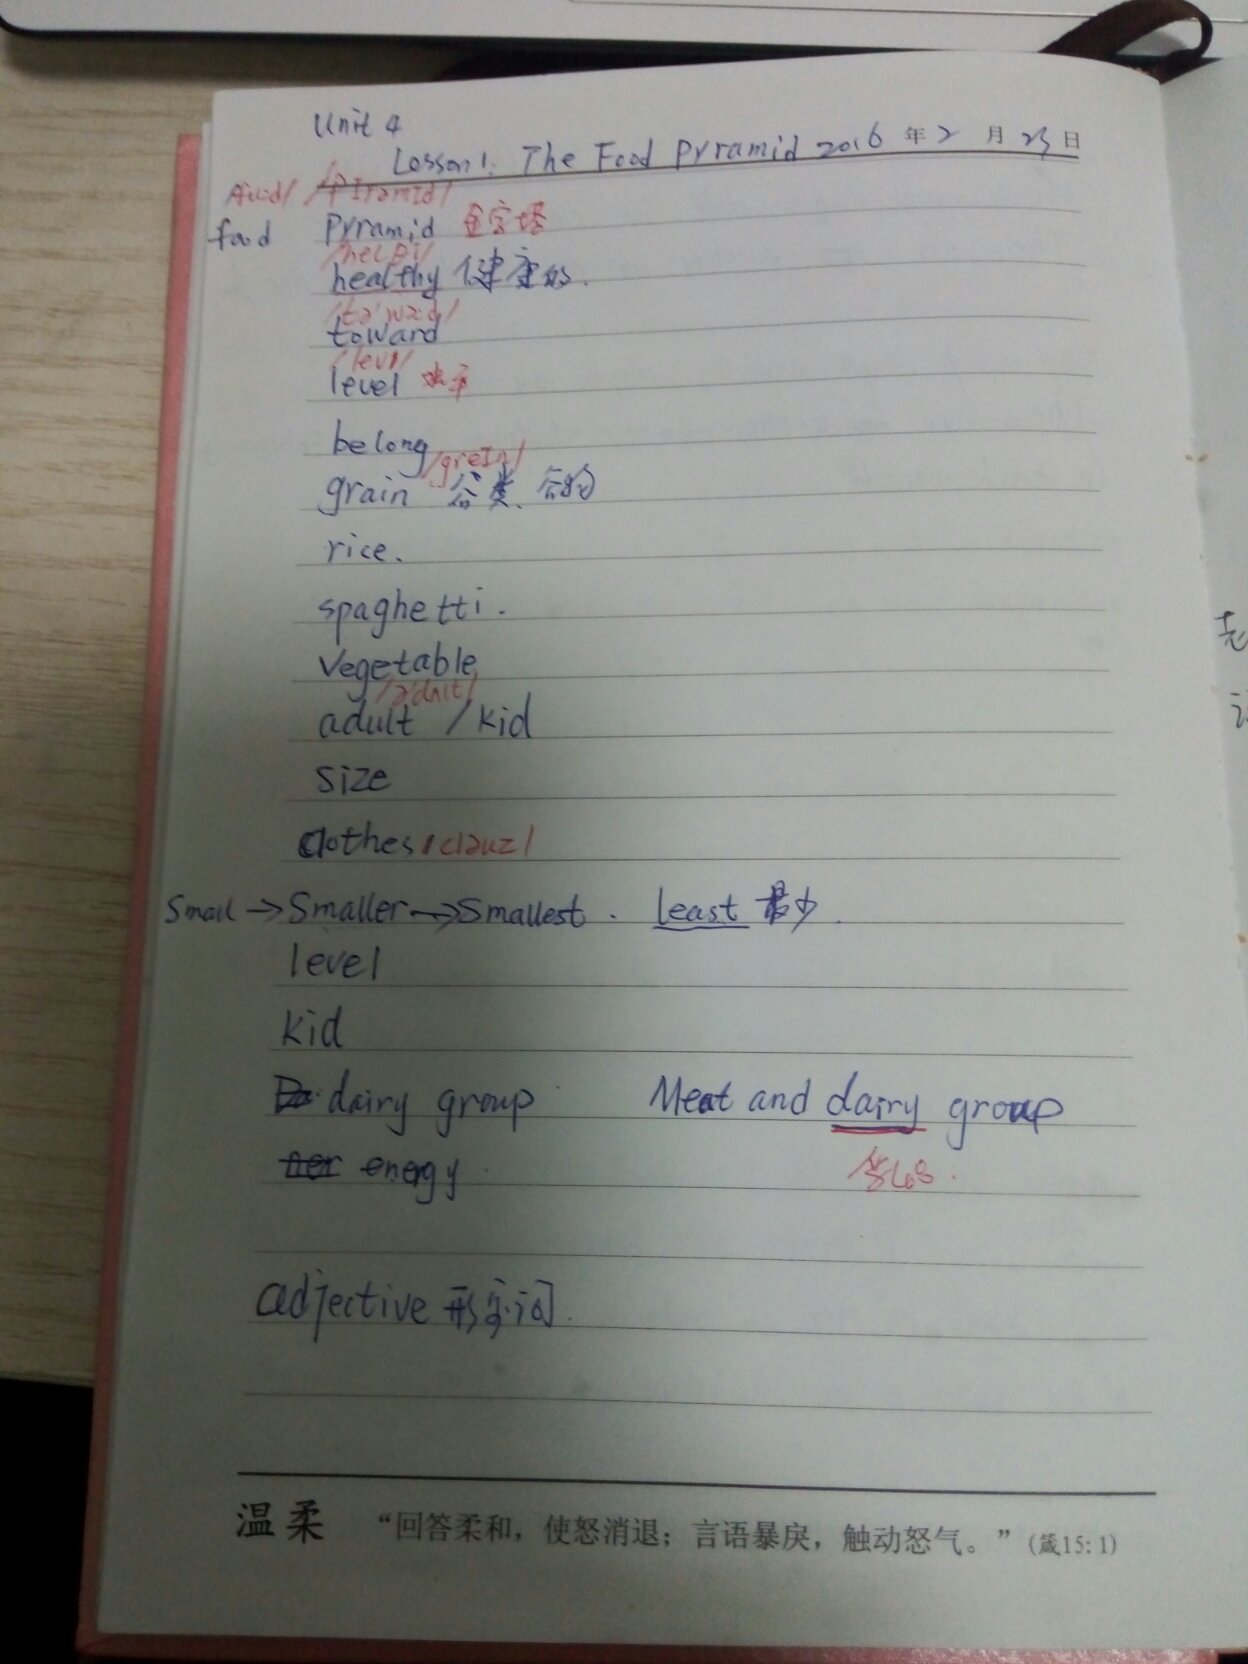 Unit 4
Lesson 1. The Food Pyramid 2016年2月23日
food pyramid 金字塔
healthy 健康的.
/tə'wɔːd/
toward
/levl/
level 水平
belong
/greɪn/
grain 谷类. 谷物
rice.
spaghetti.
vegetable
adult /kid
size
clothes
small → smaller → smallest. least 最少.
level
kid
dairy group Meat and dairy group
energy
adjective 形容词.
温柔 “回答柔和，使怒消退；言语暴戾，触动怒气。” (箴15:1)